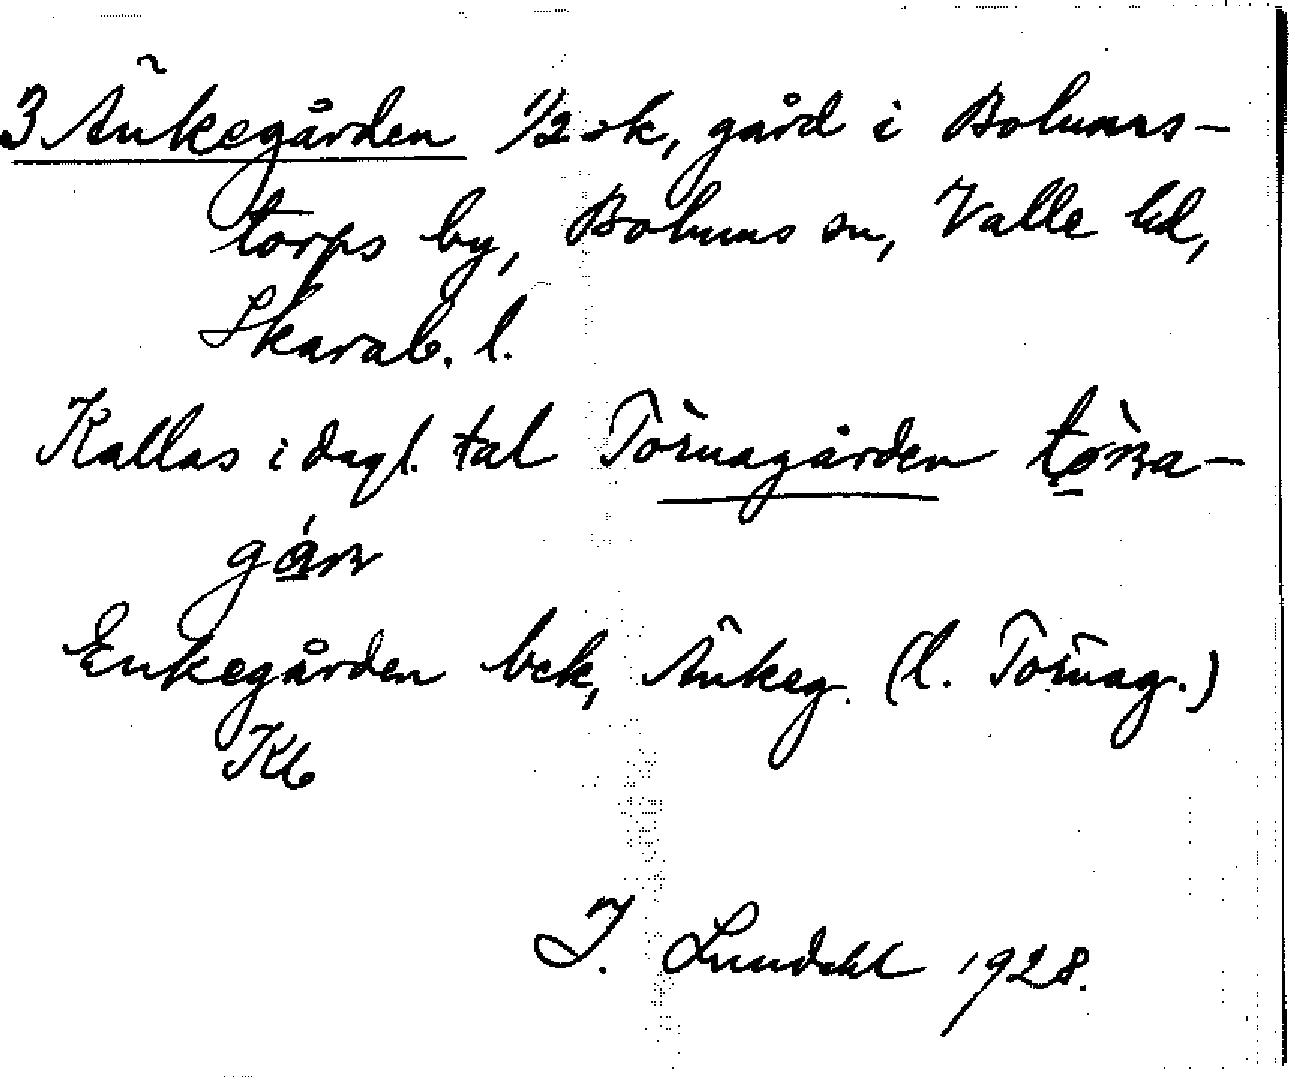 3 Änkegården 1/2 sk, gård i Bolums-
torps by, Bolums sn, Valle hd,
Skarab. l.
Kallas i dagl. tal Törnagården
Enkegården bek, Änkeg. (l. Törnag.)
Kb
I. Lundahl 1928.